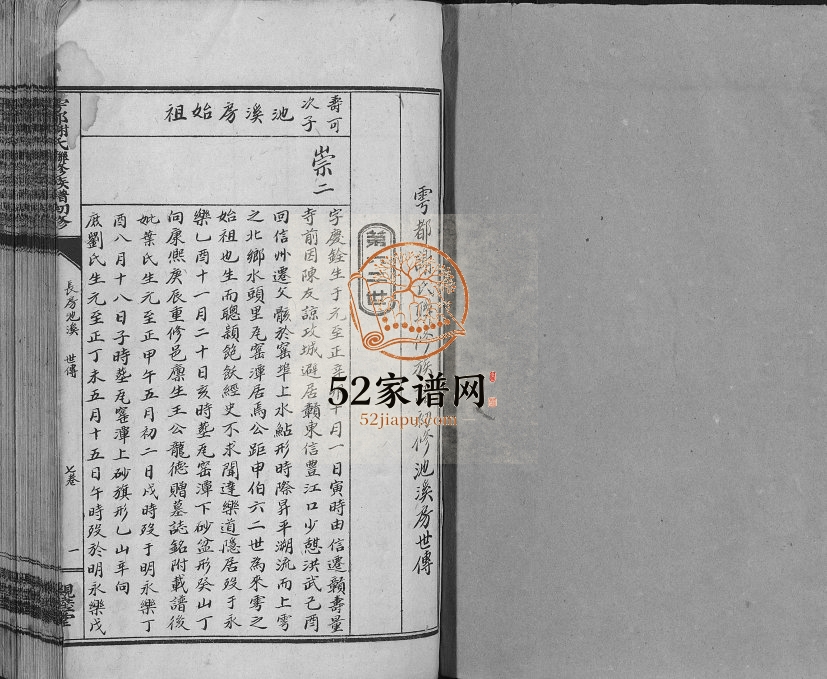 雩都謝氏聯修族 初修池溪房世傳
第 世
池溪房始祖
壽可
次子
崇二
字慶銓生于元至正辛 十月一日寅時由信遷贛壽量
寺前因陳友諒攻城避居贛東信豐江口少憇洪武己酉
回信州遷父骸於窑埠上水鮎形時際昇平溯流而上雩
之北鄉水頭里瓦窑潭居焉公距申伯六二世為來雩之
始祖也生而聰穎飽飫經史不求聞達樂道隱居歿于永
樂乙酉十一月二十日亥時塟瓦窑潭下砂盆形癸山丁
向康熙庚辰重修邑廪生王公龍德贈墓誌銘附載譜後
妣葉氏生元至正甲午五月初二日戌時歿于明永樂丁
酉八月十八日子時塟瓦窑潭上砂旗形乙山辛向
庶劉氏生元至正丁未五月十五日午時歿於明永樂戊
謝氏聯修族譜初修
長房池溪 世傳
七卷
一
52家谱网
52jiapu.com